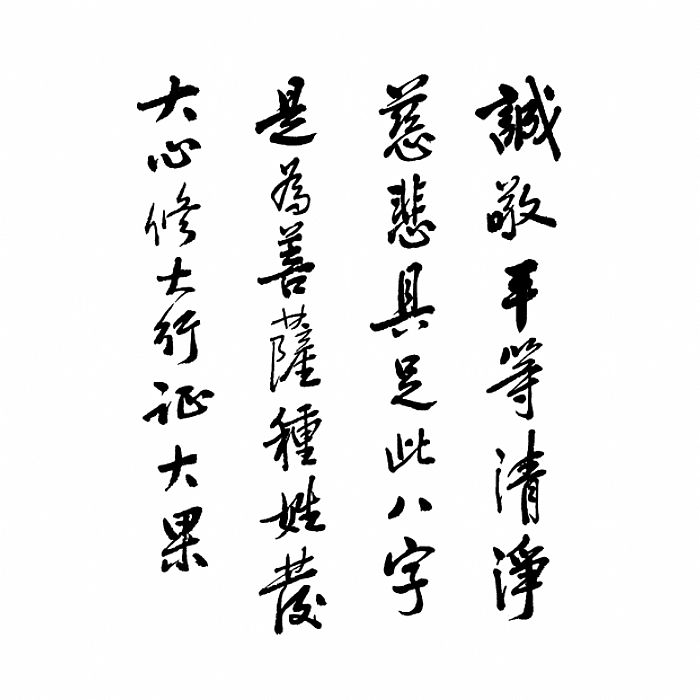 誠敬平等清淨
慈悲具足此八字
是為菩薩種姓發
大心修大行証大果